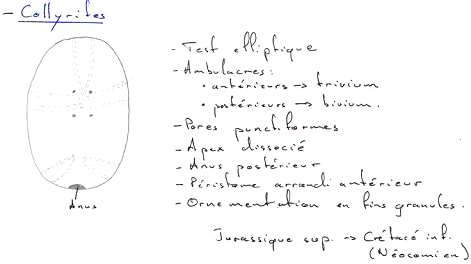 - Collyrites
- Test elliptique
- Ambulacres:
• antérieurs → trivium
• postérieurs → bivium.
- Pores punctiformes
- Apex dissocié
- Anus postérieur
- Péristome arrondi antérieur
- Ornementation en fins granules.
Anus
Jurassique sup. → Crétacé inf.
(Néocomien)